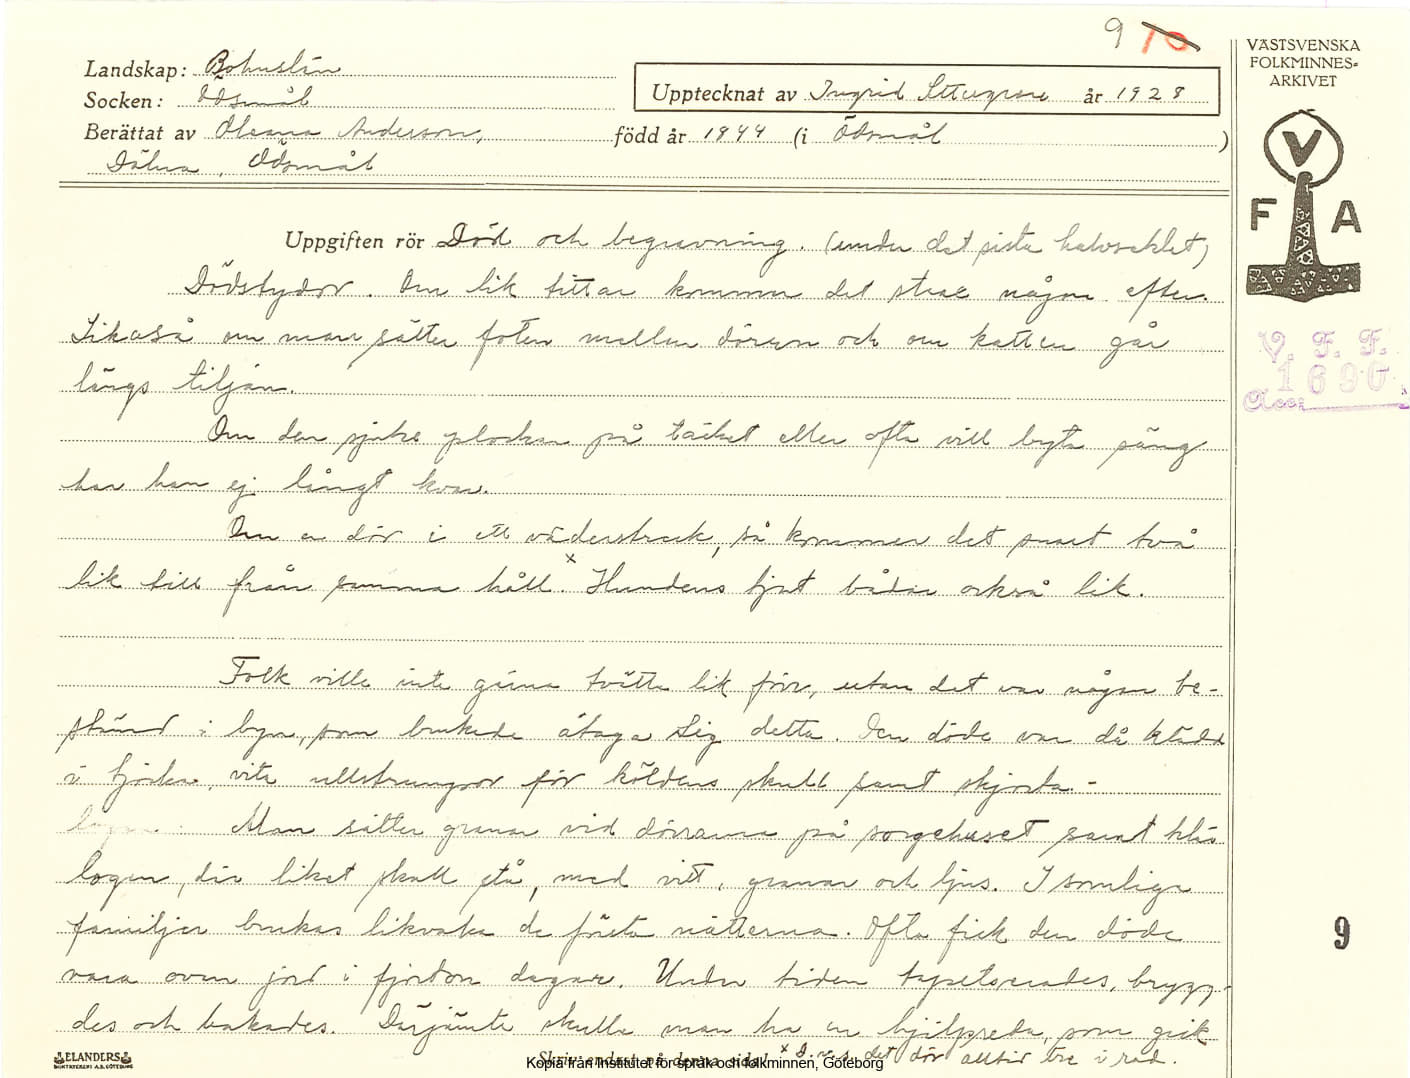 9 10
VÄSTSVENSKA
FOLKMINNES-
ARKIVET
Landskap: Bohuslän
Socken: Ödsmål
Upptecknat av Ingrid år 1928
Berättat av Oleana Anderson, född år 1844 (i Ödsmål)
Ödsmål
V
F A
Uppgiften rör Död och begravning. (under det sista halvseklet)
Dödstydor. Om lik tittar kommer det strax någon efter.
Likaså om man sätter foten mellan dörren och om katten går
längs tiljan.
V. F. F.
1690
Acc:
Om den sjuke plockar på täcket eller ofta vill byta säng
har han ej långt kvar.
Om en dör i ett väderstreck, så kommer det snart två
lik till från samma håll.x Hundens tjut bådar också lik.
Folk ville inte gärna tvätta lik förr, utan det var någon be-
stämd i byn, som brukade åtaga sig detta. Den döde var då klädd
i tjocka, vita ullstrumpor för köldens skull samt skjorta.-
Man sätter granar vid dörrarna på sorgehuset samt klär
logen, där liket skall stå, med vitt, granar och ljus. I somliga
familjer brukas likvaka de första nätterna. Ofta fick den döde
vara ovan jord i fjorton dagar. Under tiden tapetserades, brygg-
des och bakades. Därjämte skulle man ha en hjälpreda, som gick
9
ELANDERS
BOKTRYCKERI A.B. GÖTEBORG
Skriv endast på denna sida!
x D.v.s. det dör alltid tre i rad.
Kopia från Institutet för språk och folkminnen, Göteborg